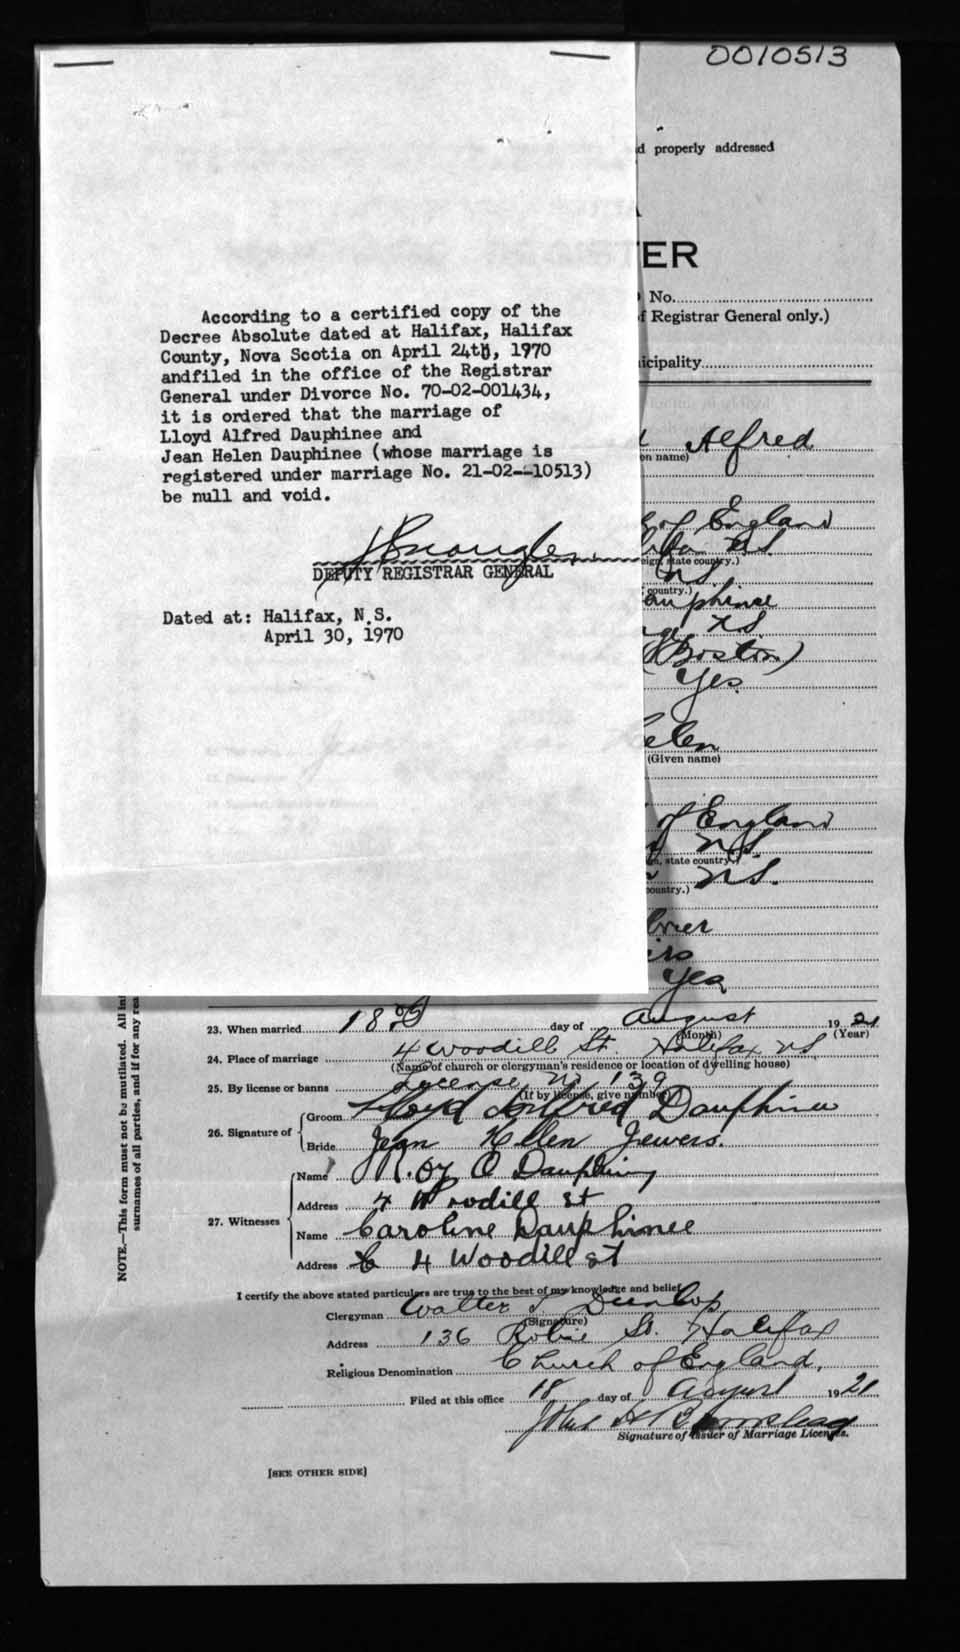 0010513
d properly addressed
ER
No.
f Registrar General only.)
icipality
According to a certified copy of the
Decree Absolute dated at Halifax, Halifax
County, Nova Scotia on April 24th, 1970
andfiled in the office of the Registrar
General under Divorce No. 70-02-001434,
it is ordered that the marriage of
Lloyd Alfred Dauphinee and
Jean Helen Dauphinee (whose marriage is
registered under marriage No. 21-02--10513)
be null and void.
DEPUTY REGISTRAR GENERAL
Dated at: Halifax, N.S.
April 30, 1970
Alfred
en name)
of England
N.S.
eign, state country.)
NS
country.)
auphinee
N.S.
(Boston)
Yes
elen
(Given name)
of England
N.S.
gn, state country.)
N.S.
country.)
Yes
NOTE.—This form must not be mutilated. All in
surnames of all parties, and if for any rea
23. When married 18th day of August 1921
(Month) (Year)
24. Place of marriage 4 Woodill St. Halifax NS
(Name of church or clergyman's residence or location of dwelling house)
25. By license or banns License No 139
(If by license, give number)
26. Signature of Groom Lloyd Alfred Dauphinee
Bride Jean Hellen Jewers.
27. Witnesses Name Roy O Dauphinee
Address 4 Woodill St
Name Caroline Dauphinee
Address 4 Woodill St
I certify the above stated particulars are true to the best of my knowledge and belief
Clergyman Walter S Dunlop
(Signature)
Address 136 Robie St. Halifax
Religious Denomination Church of England.
Filed at this office 18 day of August 1921
John H
Signature of Issuer of Marriage Licenses.
[SEE OTHER SIDE]